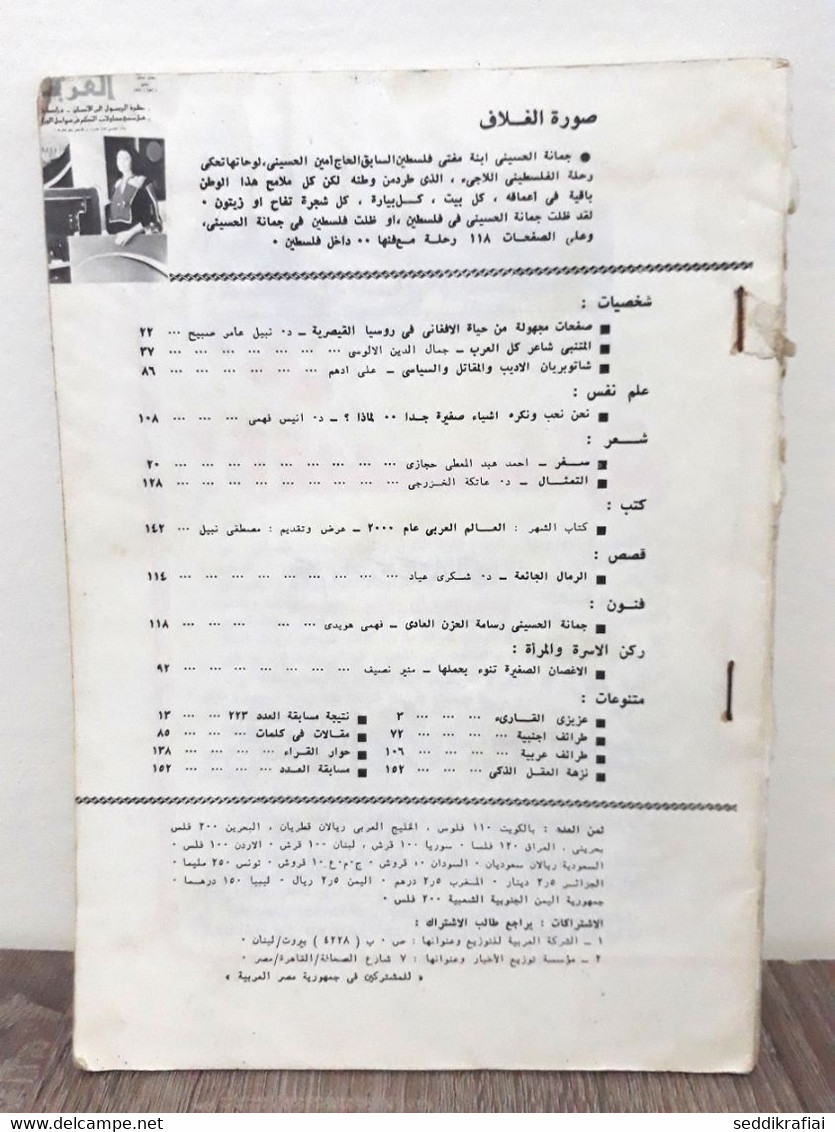 العربي
صورة الغلاف
● جمانة الحسيني ابنة مفتي فلسطين السابق الحاج أمين الحسيني، لوحاتها تحكي
رحلة الفلسطيني اللاجيء ، الذي طرد من وطنه لكن كل ملامح هذا الوطن
باقية في أعماقه ، كل بيت ، كل بيارة ، كل شجرة تفاح او زيتون ٠
لقد ظلت جمانة الحسيني في فلسطين ، او ظلت فلسطين في جمانة الحسيني،
وعلى الصفحات ١١٨ رحلة مع فنها ٠٠ داخل فلسطين ٠
شخصيات :
■ صفحات مجهولة من حياة الافغاني في روسيا القيصرية ــ د٠ نبيل عامر صبيح ... ٢٢
■ المتنبي شاعر كل العرب ــ جمال الدين الالوسي ... ... ... ... ... ... ... ٣٧
■ شاتوبريان الاديب والمقاتل والسياسي ــ علي ادهم ... ... ... ... ... ... ... ٨٦
علم نفس :
■ نحن نحب ونكره اشياء صغيرة جدا ٠٠ لماذا ؟ ــ د٠ انيس فهمي ... ... ... ١٠٨
شـــعر :
■ سـفر ــ احمد عبد المعطي حجازي ... ... ... ... ... ... ... ... ... ٢٠
■ التمثـال ــ د٠ عاتكة الخزرجي ... ... ... ... ... ... ... ... ... ١٢٨
كتب :
■ كتاب الشهر : العـالم العربي عام ٢٠٠٠ ــ عرض وتقديم : مصطفى نبيل ... ١٤٢
قصص :
■ الرمال الجائعة ــ د٠ شـكري عياد ... ... ... ... ... ... ... ... ... ١١٤
فنـون :
■ جمانة الحسيني رسامة الحزن العادي ــ فهمي هويدي ... ... ... ... ... ١١٨
ركن الاسرة والمرأة :
■ الاغصان الصغيرة تنوء بحملها ــ منير نصيف ... ... ... ... ... ... ... ٩٢
متنوعات :
■ عزيزي القـارىء ... ... ... ٣ ■ نتيجة مسابقة العدد ٢٢٣ ... ... ١٣
■ طرائف اجنبية ... ... ... ... ٧٢ ■ مقـالات في كلمات ... ... ... ٨٥
■ طرائف عربية ... ... ... ... ١٠٦ ■ حوار القـراء ... ... ... ... ١٣٨
■ نزهة العقـل الذكي ... ... ... ١٥٢ ■ مسابقة العـدد ... ... ... ... ١٥٢
ثمن العدد : بالكويت ١١٠ فلوس ، الخليج العربي ريالان قطريان ، البحرين ٢٠٠ فلس
بحريني ، العراق ١٢٠ فلسا ٠ سوريا ١٠٠ قرش ، لبنان ١٠٠ قرش ٠ الاردن ١٠٠ فلس ٠
السعودية ريالان سعوديان ٠ السودان ١٠ قروش ٠ ج٠م٠ع ١٠ قروش ٠ تونس ٢٥٠ مليما ٠
الجزائر ٢٫٥ دينار ٠ المغرب ٢٫٥ درهم ٠ اليمن ٢٫٥ ريال ٠ ليبيا ١٥٠ درهـما ٠
جمهورية اليمن الجنوبية الشعبية ٢٠٠ فلس ٠
الاشتراكات : يراجع طالب الاشتراك :
١ ــ الشركة العربية للتوزيع وعنوانها : ص ٠ ب ( ٤٢٢٨ ) بيروت/لبنان ٠
٢ ــ مؤسسة توزيع الأخبار وعنوانها : ٧ شارع الصحافة/القاهرة/مصر ٠
« للمشتركين في جمهورية مصر العربية »
www.delcampe.net
seddikrafiai